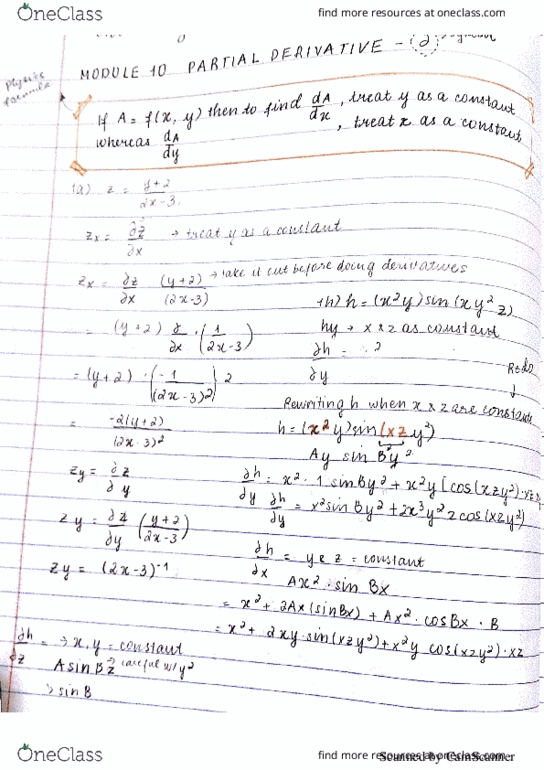 OneClass
find more resources at oneclass.com
MODULE 10 PARTIAL DERIVATIVE - (∂)
Physics formula
If A = f(x, y) then to find dA/dx, treat y as a constant
whereas dA/dy, treat x as a constant
(a) z = y+2 / 2x-3
zx = ∂z/∂x → treat y as a constant
zx = ∂z/∂x (y+2)/(2x-3) → take it out before doing derivatives
= (y+2) ∂/∂x · (1/(2x-3))
= (y+2) · (-1/(2x-3)²) 2
= -2(y+2)/(2x-3)²
zy = ∂z/∂y
zy = ∂z/∂y (y+2/2x-3)
zy = (2x-3)⁻¹
h = (x²y) sin(xy²z)
hy → x & z as constant
∂h/∂y = ?
Redo
Rewriting h when x & z are constants
h = (x²y) sin(xzy²)
Ay sin By²
∂h/∂y = x² · 1 sin By² + x²y [cos(xzy²) ·
∂h/∂y = x² sin By² + 2x³y²z cos(xzy²)
∂h/∂x = y & z = constant
Ax² · sin Bx
= x² + 2Ax (sin Bx) + Ax² · cos Bx · B
= x² + 2xy · sin(xzy²) + x²y cos(xzy²) · xz
∂h/∂z = → x, y = constant
A sin Bz careful w/ y²
→ sin B
OneClass
find more resources at oneclass.com
Scanned by CamScanner